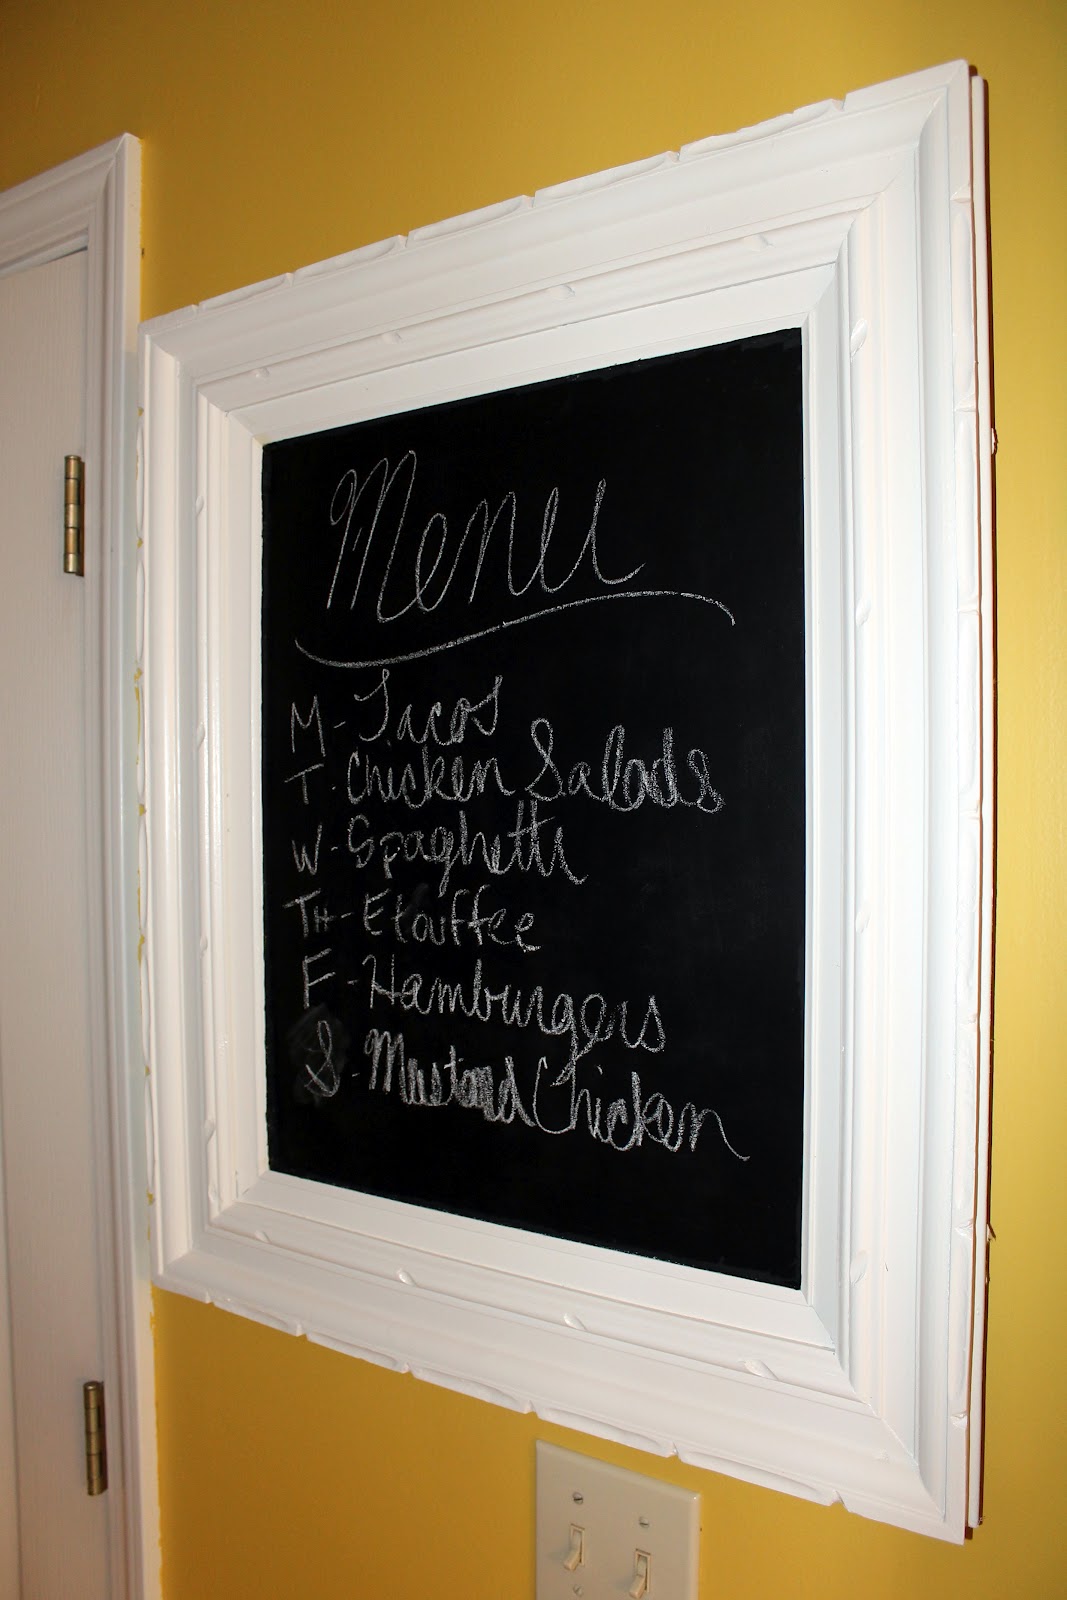 Menu
M - Tacos
T - Chicken Salads
W - Spaghetti
TH - Etouffee
F - Hamburgers
S - Mustard Chicken